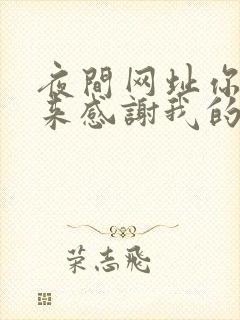 夜間网址你
来感謝我的
荣志飛